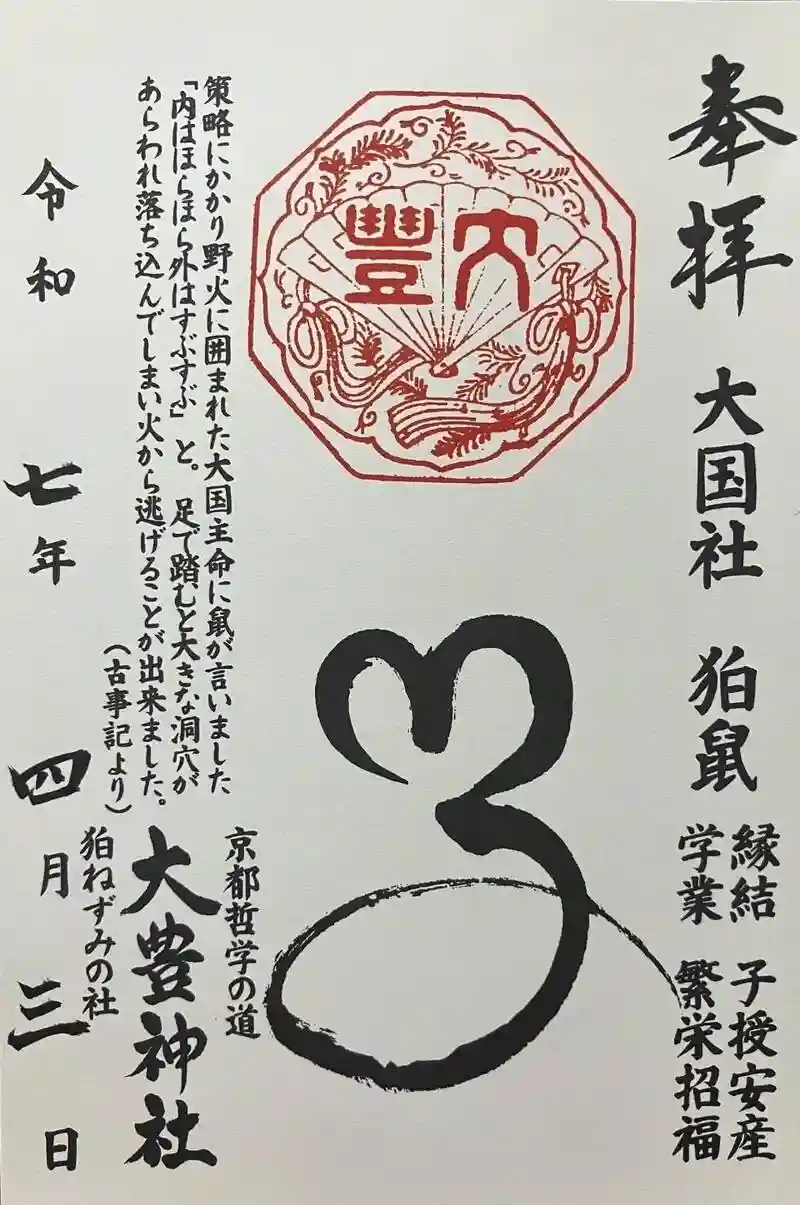 奉拝
大国社 狛鼠
縁結 子授安産
学業 繁栄招福
大豐
策略にかかり野火に囲まれた大国主命に鼠が言いました
「内はほらほら外はすぶすぶ」と。足で踏むと大きな洞穴が
あらわれ落ち込んでしまい火から逃げることが出来ました。
（古事記より）
京都哲学の道
大豊神社
狛ねずみの社
令和七年四月三日